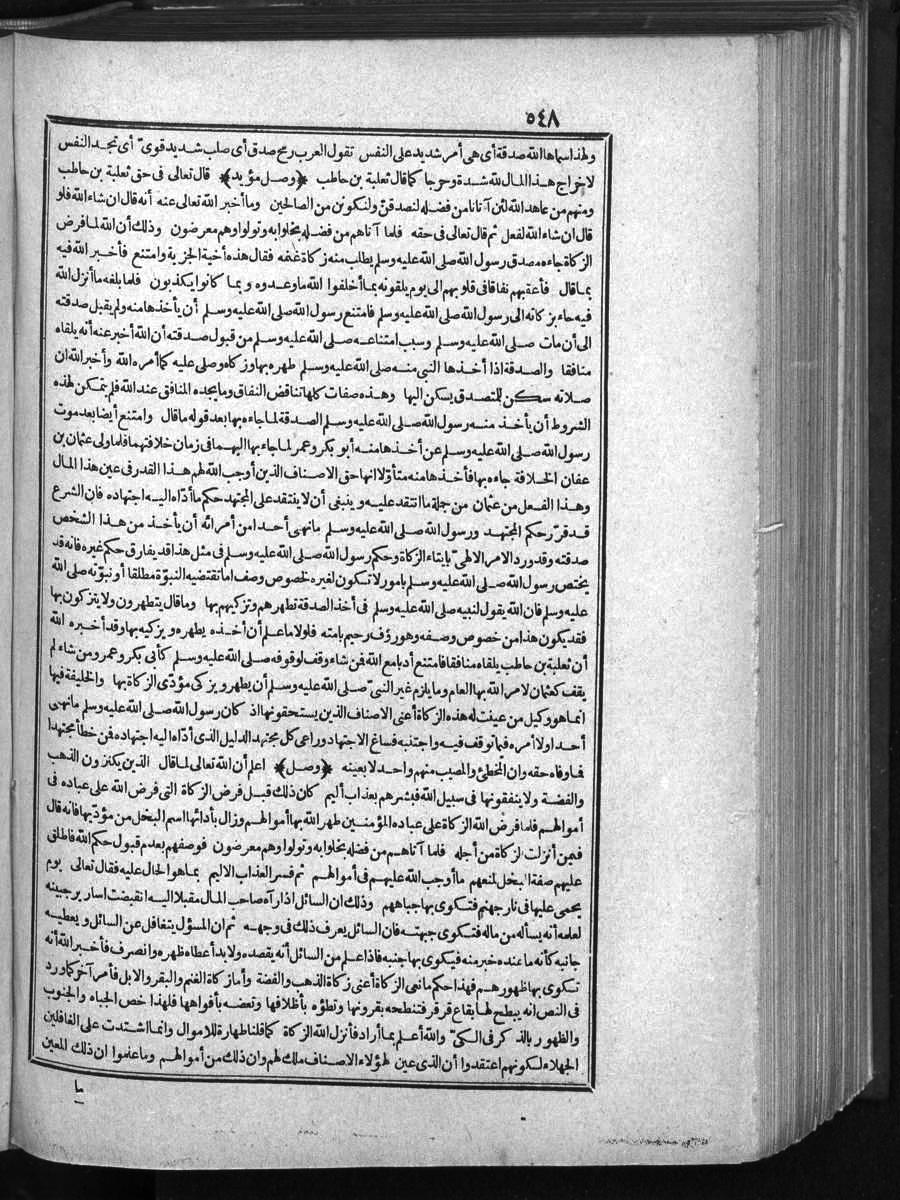 ٥٤٨
ولهذا سماها الله صدقة أى هى أمر شديد على النفس تقول العرب رمح صدق أى صلب شديد قوى أى تجد النفس
لاخراج هذا المال لله شدة وحرجا كما قال ثعلبة بن حاطب ﴿وصل مؤيد﴾ قال تعالى فى حق ثعلبة بن حاطب
ومنهم من عاهد الله لئن آتانا من فضله لنصدقن ولنكونن من الصالحين وما أخبر الله تعالى عنه أنه قال ان شاء الله فلو
قال ان شاء الله لفعل ثم قال تعالى فى حقه فلما آتاهم من فضله بخلوا به وتولوا وهم معرضون وذلك أن الله لما فرض
الزكاة جاءه مصدق رسول الله صلى الله عليه وسلم يطلب منه زكاة غنمه فقال هذه أخية الجزية وامتنع فأخبر الله فيه
بما قال فأعقبهم نفاقا فى قلوبهم الى يوم يلقونه بما أخلفوا الله ما وعدوه وبما كانوا يكذبون فلما بلغه ما أنزل الله
فيه جاء بزكاته الى رسول الله صلى الله عليه وسلم فامتنع رسول الله صلى الله عليه وسلم أن يأخذها منه ولم يقبل صدقته
الى أن مات صلى الله عليه وسلم وسبب امتناعه صلى الله عليه وسلم من قبول صدقته أن الله أخبر عنه أنه يلقاه
منافقا والصدقة اذا أخذها النبى منه صلى الله عليه وسلم طهره بها وزكاه وصلى عليه كما أمره الله وأخبر الله ان
صلاته سكن للمتصدق يسكن اليها وهذه صفات كلها تناقض النفاق وما يجده المنافق عند الله فلم يتمكن لهذه
الشروط أن يأخذ منه رسول الله صلى الله عليه وسلم الصدقة لما جاءه بها بعد قوله ما قال وامتنع أيضا بعد موت
رسول الله صلى الله عليه وسلم عن أخذها منه أبو بكر وعمر لما جاء بها اليهما فى زمان خلافتهما فلما ولى عثمان بن
عفان الخلافة جاءه بها فأخذها منه متأولا انها حق الاصناف الذين أوجب الله لهم هذا القدر فى عين هذا المال
وهذا الفعل من عثمان من جملة ما انتقد عليه وينبغى أن لا ينتقد على المجتهد حكم ما أداه اليه اجتهاده فان الشرع
قد قرر حكم المجتهد ورسول الله صلى الله عليه وسلم ما نهى أحدا من امرائه أن يأخذ من هذا الشخص
صدقته وقد ورد الامر الالهى بايتاء الزكاة وحكم رسول الله صلى الله عليه وسلم فى مثل هذا قد يفارق حكم غيره فانه قد
يختص رسول الله صلى الله عليه وسلم بامور لا تكون لغيره لخصوص وصف اما تقتضيه النبوة مطلقا أو نبوته صلى الله
عليه وسلم فان الله يقول لنبيه صلى الله عليه وسلم فى أخذ الصدقة تطهرهم وتزكيهم بها وما قال يتطهرون ولا يتزكون بها
فقد يكون هذا من خصوص وصفه وهو رؤف رحيم بامته فلولا ما علم أن أخذه يطهره ويزكيه بها وقد أخبره الله
أن ثعلبة بن حاطب يلقاه منافقا فامتنع أدبا مع الله فمن شاء وقف لوقوفه صلى الله عليه وسلم كأبى بكر وعمر ومن شاء لم
يقف كعثمان لامر الله بها العام وما يلزم غير النبى صلى الله عليه وسلم أن يطهر ويزكى مؤدى الزكاة بها والخليفة فيها
انما هو وكيل من عينت له هذه الزكاة أعنى الاصناف الذين يستحقونها اذ كان رسول الله صلى الله عليه وسلم ما نهى
أحدا ولا أمره فيما توقف فيه واجتنبه فساغ الاجتهاد وراعى كل مجتهد الدليل الذى أداه اليه اجتهاده فمن خطأ مجتهدا
فما وفاه حقه وان المخطئ والمصيب منهم واحد لا بعينه ﴿وصل﴾ اعلم أن الله تعالى لما قال الذين يكنزون الذهب
والفضة ولا ينفقونها فى سبيل الله فبشرهم بعذاب أليم كان ذلك قبل فرض الزكاة التى فرض الله على عباده فى
أموالهم فلما فرض الله الزكاة على عباده المؤمنين طهر الله بها أموالهم وزال بأدائها اسم البخل من مؤديها فانه قال
فيمن أنزلت الزكاة من أجله فلما آتاهم من فضله بخلوا به وتولوا وهم معرضون فوصفهم بعدم قبول حكم الله فاطلق
عليهم صفة البخل لمنعهم ما أوجب الله عليهم فى أموالهم ثم فسر العذاب الاليم بما هو الحال عليه فقال تعالى يوم
يحمى عليها فى نار جهنم فتكوى بها جباههم وذلك ان السائل اذا رآه صاحب المال مقبلا اليه انقبضت اسارير جبينه
لعلمه أنه يسأله من ماله فتكوى جبهته فان السائل يعرف ذلك فى وجهه ثم ان المسؤل يتغافل عن السائل ويعطيه
جانبه كأنه ما عنده خبر منه فيكوى بها جنبه فاذا علم من السائل أنه يقصده ولا بد أعطاه ظهره وانصرف فأخبر الله أنه
تكوى بها ظهورهم فهذا حكم مانعى الزكاة أعنى زكاة الذهب والفضة وأما زكاة الغنم والبقر والابل فأمر آخر كما ورد
فى النص انه يبطح لها بقاع قرقر فتنطحه بقرونها وتطؤه بأظلافها وتعضه بأفواهها فلهذا خص الجباه والجنوب
والظهور بالذكر فى الكى والله أعلم بما أراد فأنزل الله الزكاة كما قلنا طهارة للاموال وانما اشتدت على الغافلين
الجهلاء لكونهم اعتقدوا أن الذى عين لهؤلاء الاصناف ملك لهم وان ذلك من أموالهم وما علموا ان ذلك المعين
ما